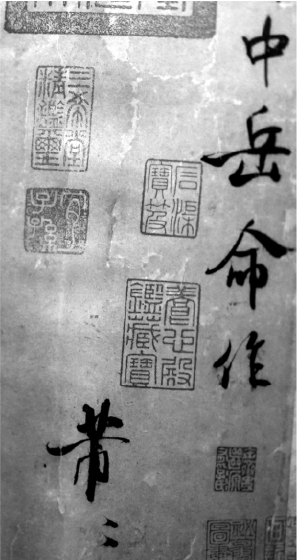 中岳命作
石渠寶笈
養心殿鑑藏寶
芾
三希堂精鑑璽
宜子孫